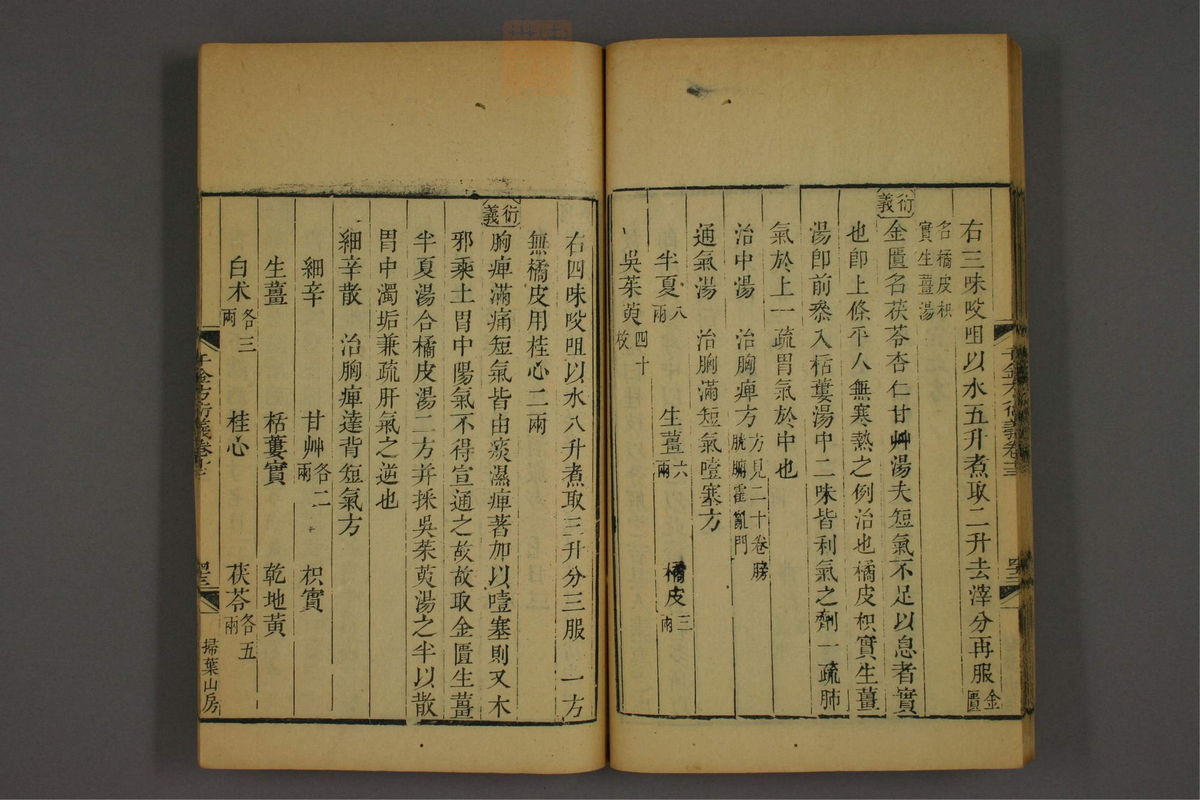 右三味㕮咀以水五升煮取二升去滓分再服金匱
名橘皮枳
實生薑湯
衍義
金匱名茯苓杏仁甘艸湯夫短氣不足以息者實
也卽上條平人無寒熱之例治也橘皮枳實生薑
湯卽前叅入栝蔞湯中二味皆利氣之劑一疏肺
氣於上一疏胃氣於中也
治中湯 治胸痺方方見二十卷膀
胱腑霍亂門
通氣湯 治胸滿短氣噎塞方
半夏八兩 生薑六兩 橘皮三兩
吳茱萸四十枚
右四味㕮咀以水八升煮取三升分三服一方
無橘皮用桂心二兩
衍義
胸痺滿痛短氣皆由痰濕痺著加以噎塞則又木
邪乘土胃中陽氣不得宣通之故故取金匱生薑
半夏湯合橘皮湯二方并採吳茱萸湯之半以散
胃中濁垢兼疏肝氣之逆也
細辛散 治胸痺達背短氣方
細辛 甘艸各二兩 枳實
生薑 栝蔞實 乾地黃
白术各三兩 桂心 茯苓各五兩
千金方衍義卷十三
掃葉山房